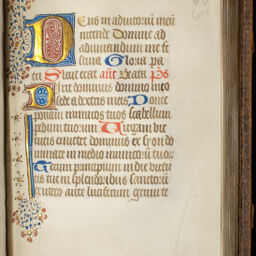 Deus in adiutoriu meu
intende Domine ad
adiuuandum me fe
stina Gloria pa
tri Sicut erat ant Beata ps
Dixit dominus domino meo
sede a dextris meis Donec
ponam inimicos tuos scabellum
pedum tuorum Virgam vir
tutis emittet dominus ex syon do
minare in medio inimicoru tuor
Tecum principium in die virtu
tis tue in splendoribus sanctoru
ex utero ante luciferum genui te